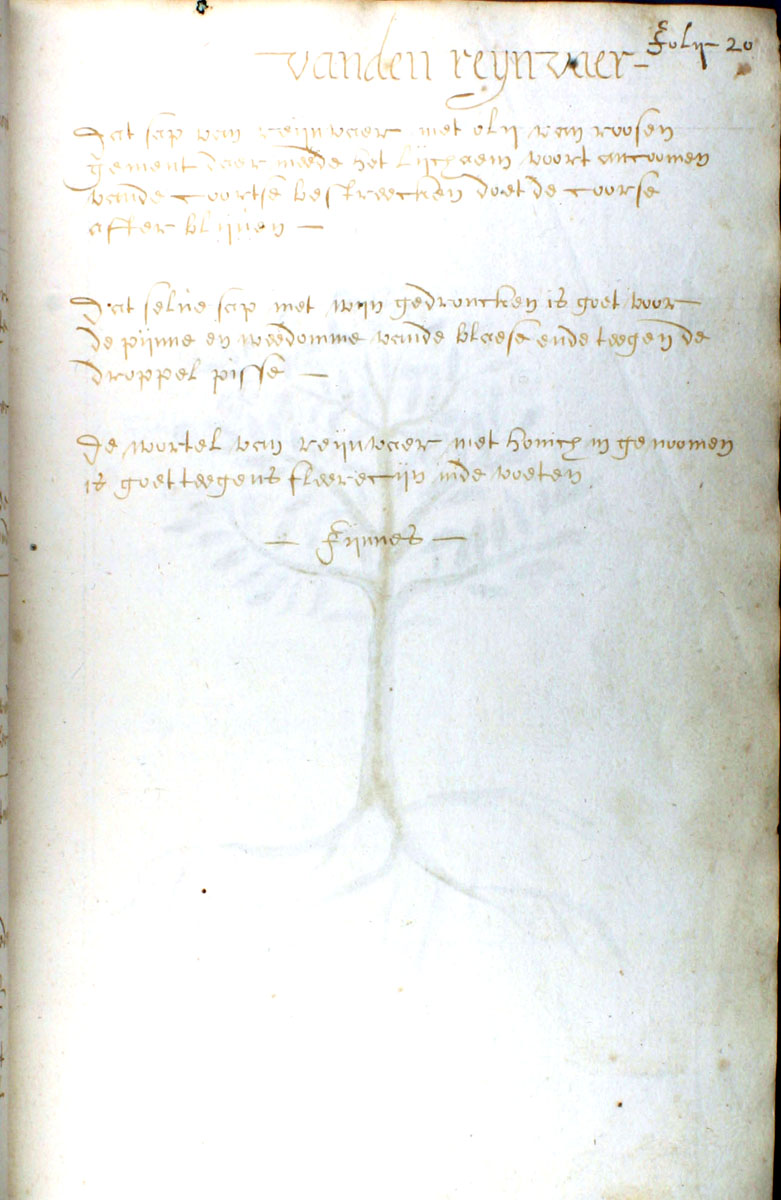 folij 20
vanden reynvaer
Dat sap van reijnvaer met olij van roosen
gement daer meede het lijchaem voort ancoomen
vande coortse bestreecken doet de coorse
after blijven
Dat selve sap met wijn gedroncken is goet voor
de pijnne en weedomme vande blaese ende teegen de
droppel pisse
De wortel van reijnvaer met honich in genoomen
is goet teegens fleerecijn inde voeten
fijnnes